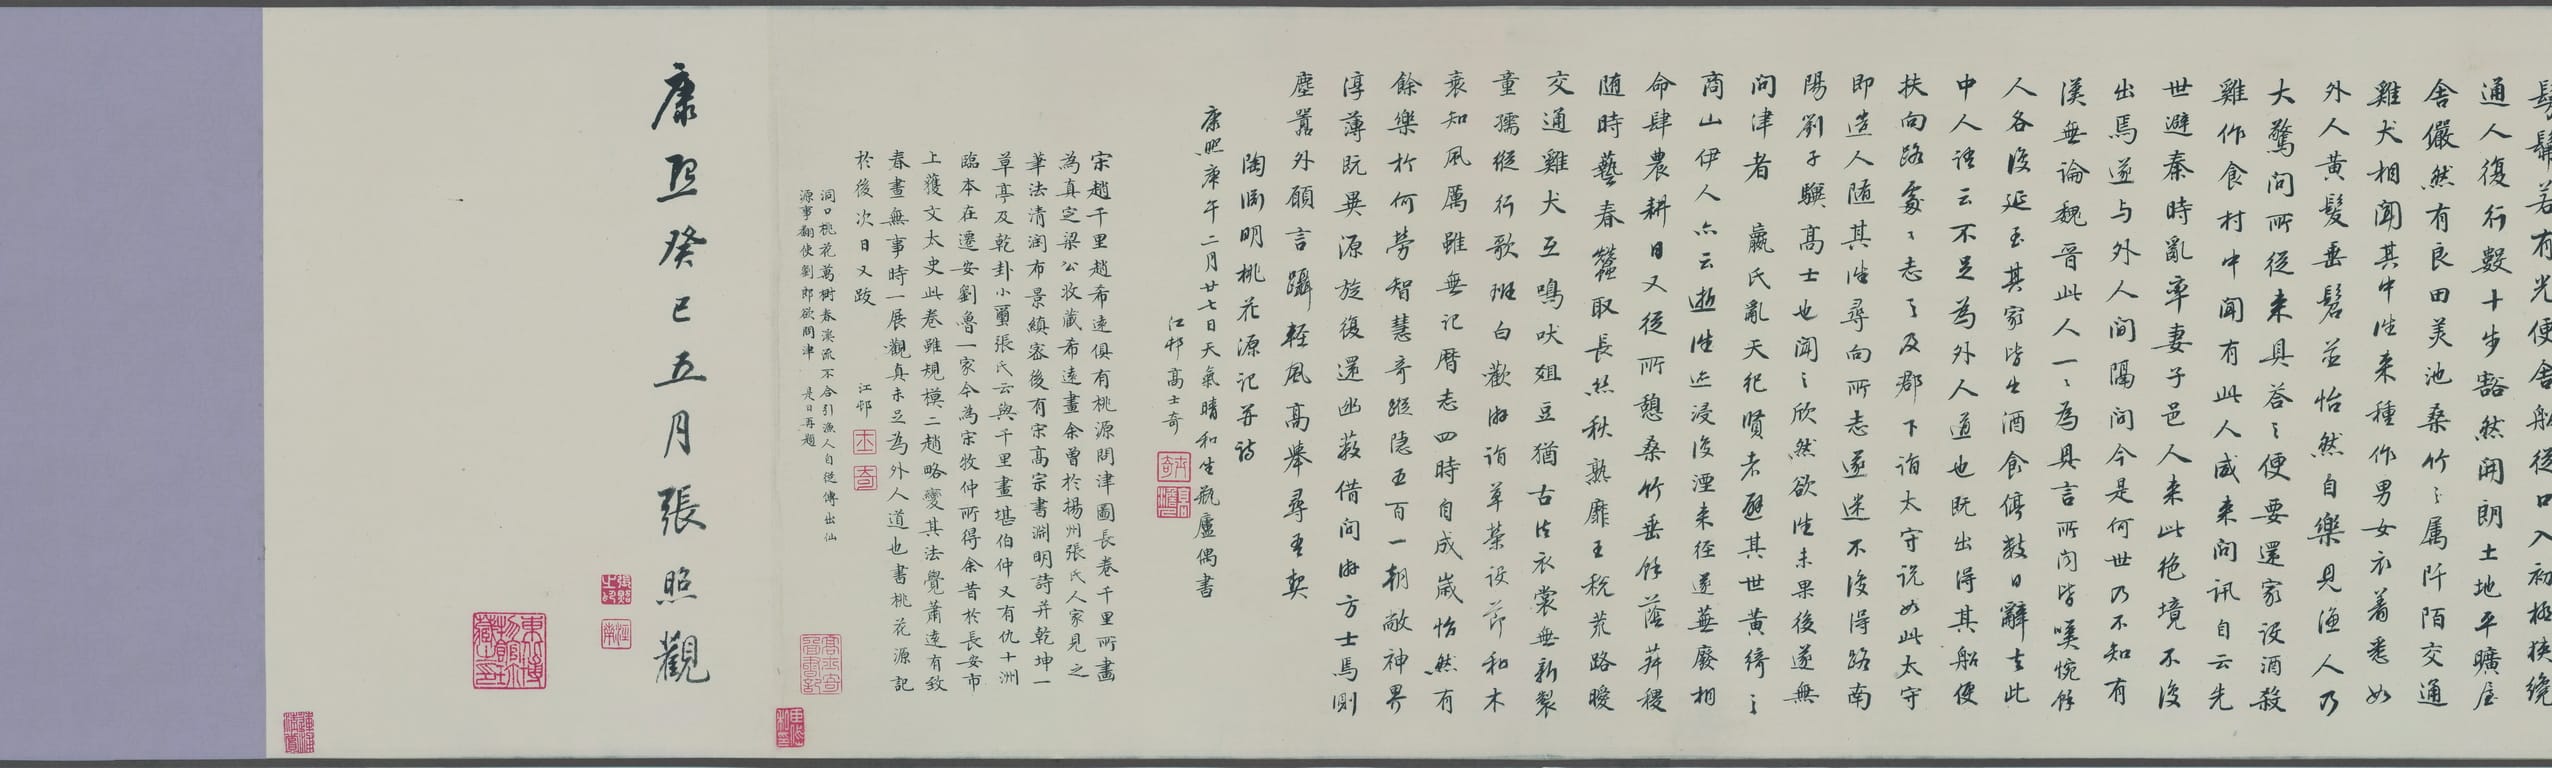 髣髴若有光便舍船從口入初極狹纔
通人復行數十步豁然開朗土地平曠屋
舍儼然有良田美池桑竹之属阡陌交通
雞犬相聞其中往来種作男女衣著悉如
外人黄髮垂髫並怡然自樂見漁人乃
大驚問所從来具荅之便要還家設酒殺
雞作食村中聞有此人咸来問訊自云先
世避秦時亂率妻子邑人来此絶境不復
出焉遂与外人間隔問今是何世乃不知有
漢無論魏晉此人一ミ為具言所聞皆嘆惋餘
人各復延至其家皆出酒食停數日辭去此
中人語云不足為外人道也既出得其船便
扶向路處ミ志之及郡下詣太守説如此太守
即造人随其往尋向所志遂迷不復得路南
陽劉子驥髙士也聞之欣然欲往未果後遂無
問津者 嬴氏亂天紀賢者避其世黄綺之
商山伊人亦云逝往迹浸復湮来徑遂蕪廢相
命肆農耕日又從所憩桑竹垂餘蔭菽稷
随時藝春蠶取長絲秋熟靡王稅荒路曖
交通雞犬互鳴吠俎豆猶古法衣裳無新製
童孺縱行歌班白歡遊詣草榮設節和木
衰知風厲雖無記曆志四時自成嵗怡然有
餘樂於何勞智慧奇蹤隐五百一朝敞神界
淳薄既異源旋復還幽蔽借問遊方士焉測
塵囂外願言躡輕風髙舉尋吾契
陶淵明桃花源記并詩
康熙庚午二月廿七日天氣晴和生瓶廬偶書
江邨髙士奇
宋趙千里趙希遠俱有桃源問津圖長卷千里所畫
為真定梁公收蔵希遠畫余曾於揚州張氏人家見之
筆法清潤布景縝密後有宋髙宗書淵明詩并乾坤一
草亭及乾卦小璽張氏云與千里畫堪伯仲又有仇十洲
臨本在遷安劉魯一家今為宋牧仲所得余昔於長安市
上獲文太史此卷雖規模二趙略變其法覺蕭遠有致
春晝無事時一展觀真未足為外人道也書桃花源記
於後次日又跋 江邨
洞口桃花萬樹春溪流不合引漁人自從傳出仙
源事翻使劉郎欲問津 是日再題
康熙癸巳五月張照觀